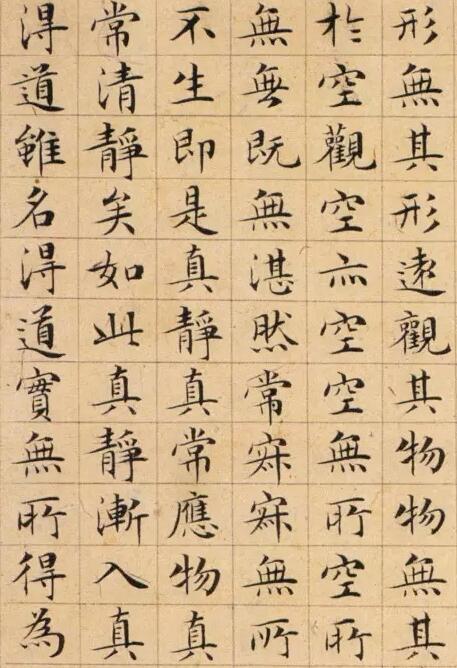 形無其形遠觀其物物無其
於空觀空亦空空無所空所
無無既無湛然常寂寂無所
不生即是真靜真常應物真
常清靜矣如此真靜漸入真
得道雖名得道實無所得為